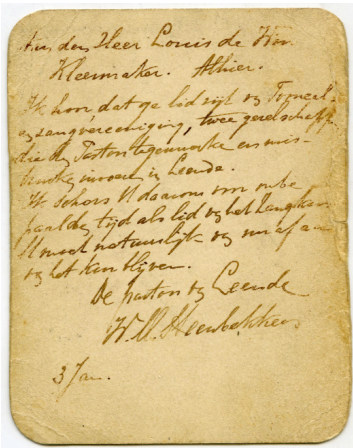 Aan den Heer Louis de Win
Kleermaker. Alhier.
Ik hoor dat ge lid zijt vd Tooneel-
en zangvereeniging, twee gezelschappen
die den Pastoor tegenwerken en mis-
bruiken invoeren in Leende.
Ik schors U daarom voor onbe-
paalden tijd als lid vd het Zangkoor
U moet natuurlijk van nu af aan
vd het Kan blijven.
De pastoor vd Leende
W.M. Heerbekkers
3 Jan.